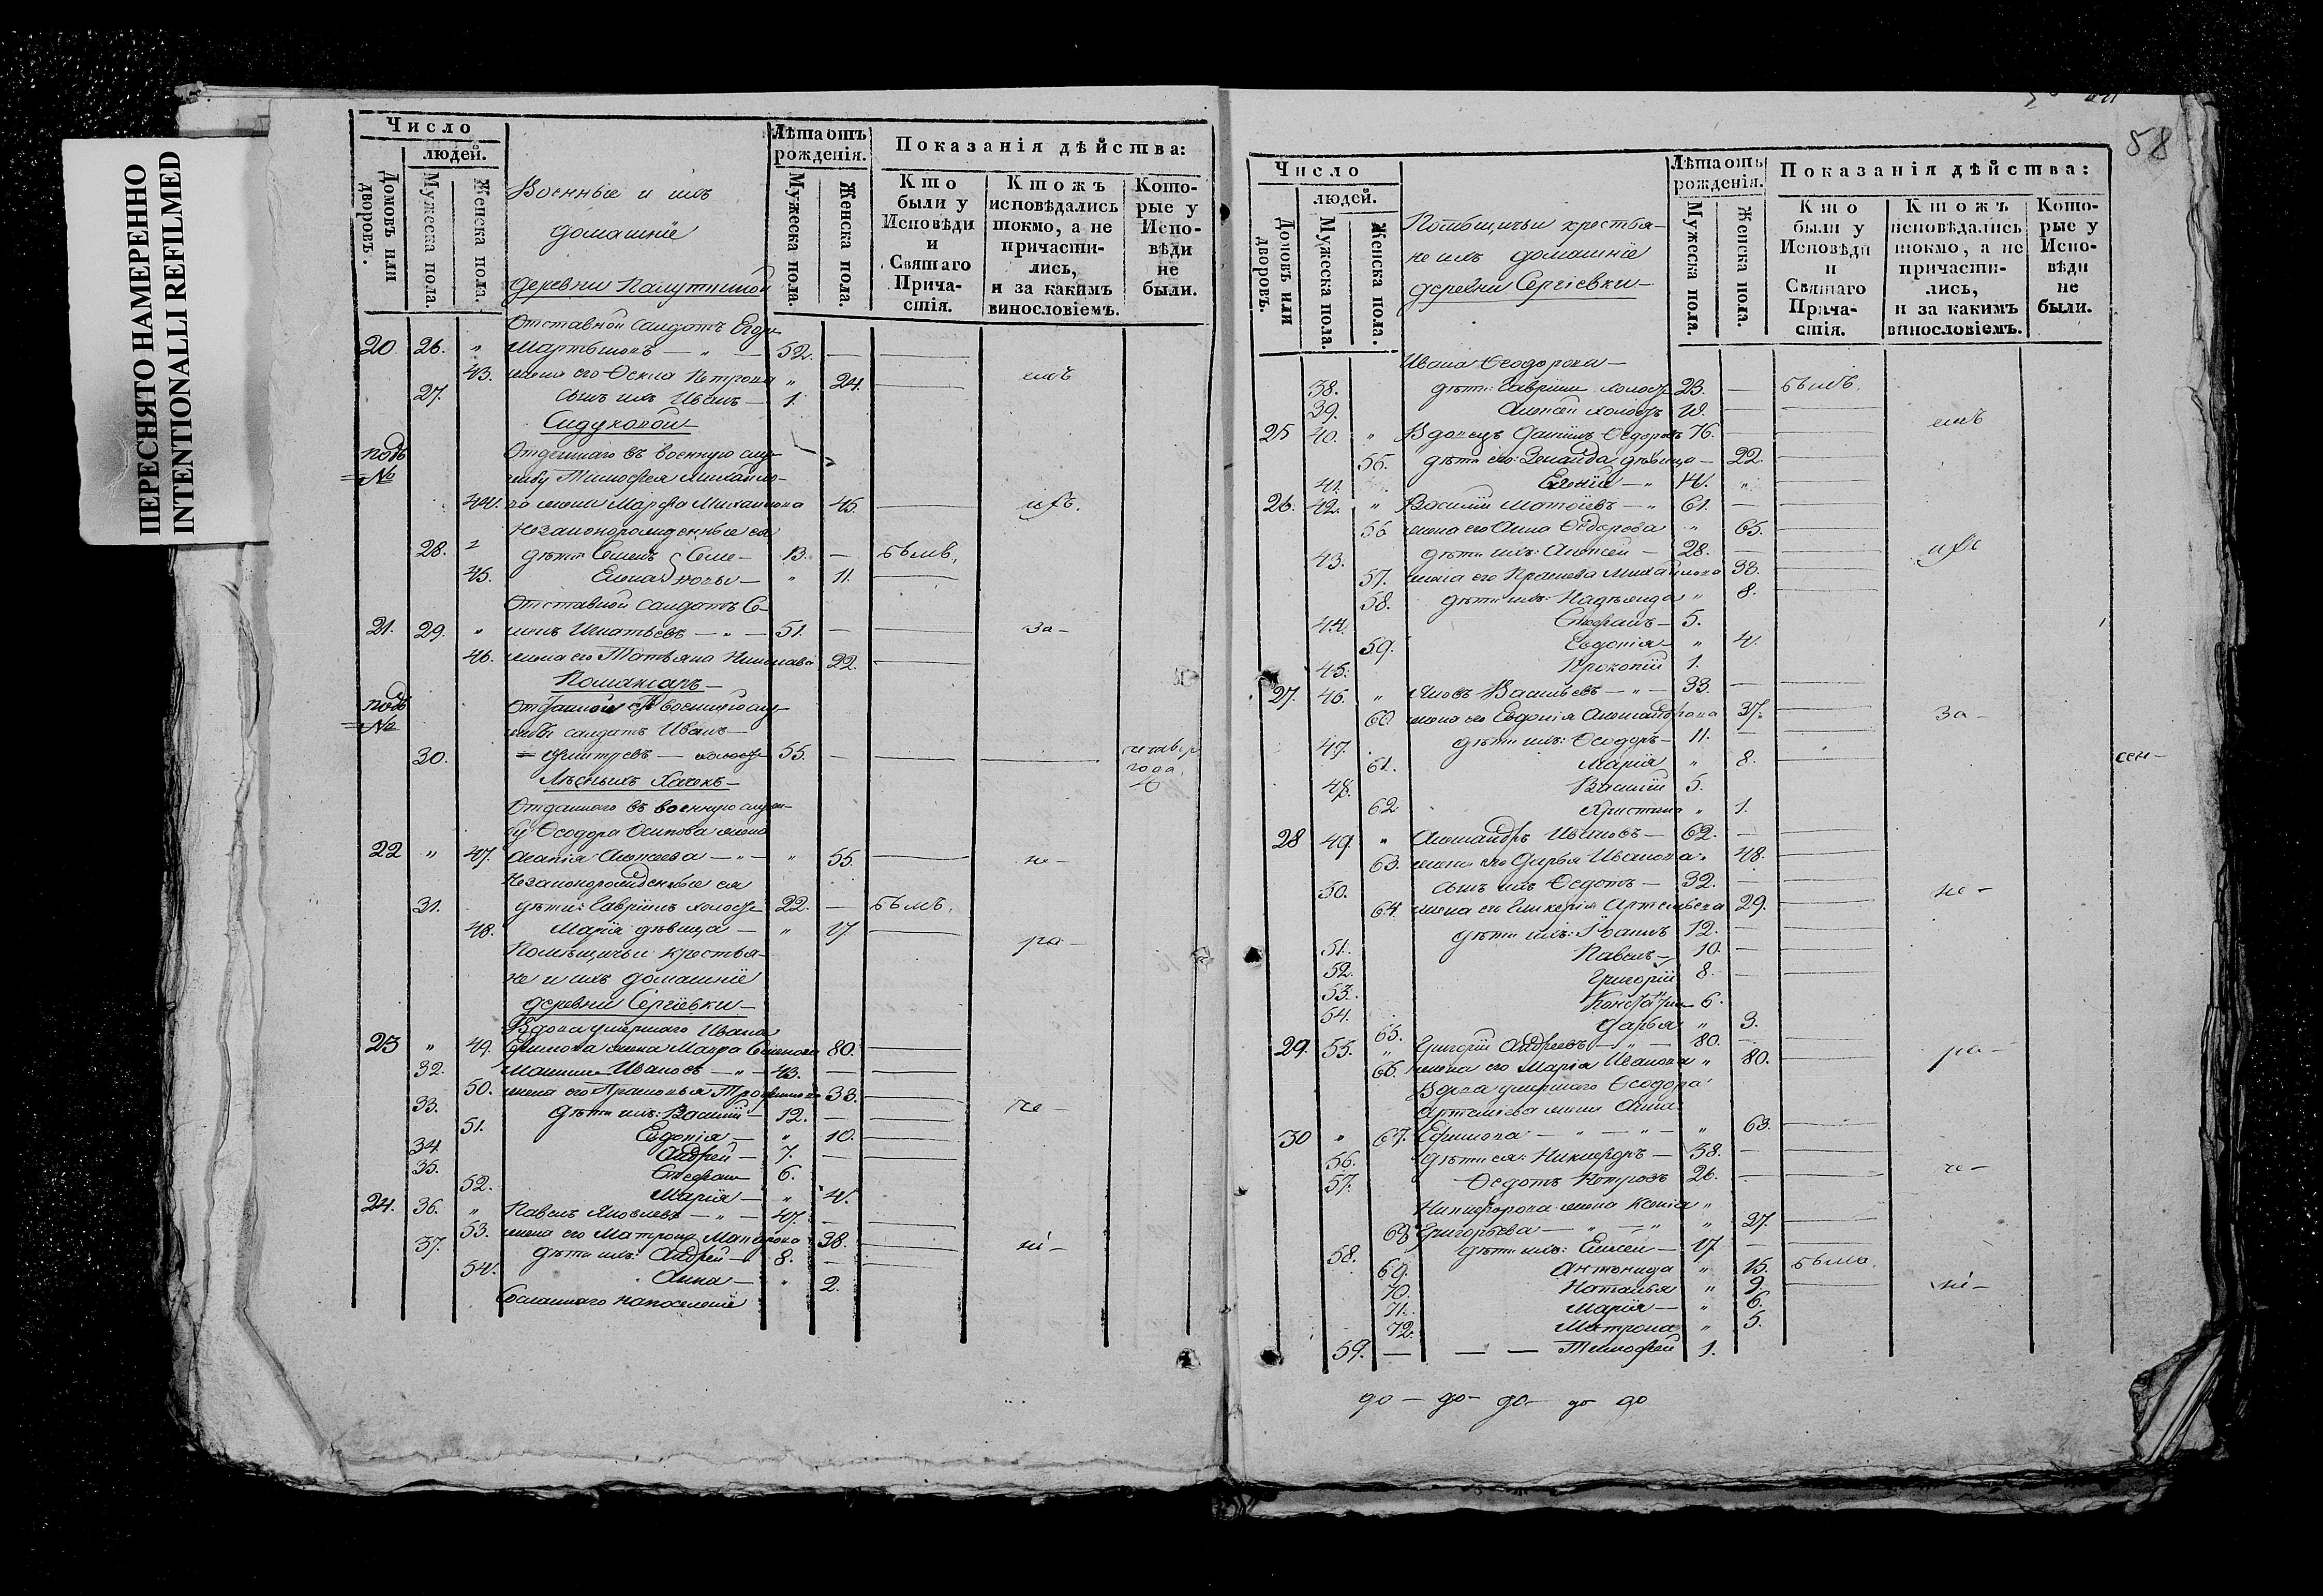 ПЕРЕСНЯТО НАМЕРЕННО
INTENTIONALLI REFILMED
Число
людей.
Домовъ или дворовъ.
Мужеска пола.
Женска пола.
Военные и ихъ
домашніе
деревни
Лѣта отъ рожденія.
Мужеска пола.
Женска пола.
Показанія дѣйства:
Кто были у Исповѣди и Святаго Причастія.
Ктожъ исповѣдались токмо, а не причастились, и за какимъ винословіемъ.
Которые у Исповѣди не были.
Отставной солдатъ
20. 26. " Мартыновъ — " — 52. —
43. жена его Ѳекла Петрова " 24.
27. сынъ ихъ Иванъ — 1.
подъ
№
Отданнаго въ военную слу-
жбу Тимофея Михайло-
44. ва жена Марфа Михайлова 45.
Незаконорожденные ея
28. дѣти Семенъ 13. — былъ.
45. Елена " 11.
Отставной солдатъ Се-
21. 29. " менъ Игнатьевъ — " — 51. — за-
46. жена его Татьяна 22.
подъ
№
солдатъ Иванъ
30. Дмитревъ — холостъ 55. —
года.
Отданнаго въ военную служ-
бу Ѳеодора Осипова жена
22 " 47. Агапія Алексеева — " — " 55. не-
Незаконорожденные ея
31. дѣти: Гавріилъ холостъ 22. — былъ.
48. Марія дѣвица — " 17 ра-
Помѣщичьи крестья-
не и ихъ домашніе
деревни Сергіевки
Вдова умершаго Ивана
23 " 49. Ефимова жена Мавра Семенова 80.
32. Ивановъ — " — 43. —
50. жена его Прасковья 33.
33. дѣти ихъ: Василій — 12. — че-
51. Евдокія — " 10.
34. Андрей — 7. —
35. Стефанъ 6.
52. Марія — " 4.
24. 36. " Павелъ Яковлевъ — " — 47. —
53. жена его Матрона 38.
37. дѣти ихъ: Андрей — 8. — ні-
54. Анна — " 2.
Сосланнаго на поселеніе
58
Число
людей.
Домовъ или дворовъ.
Мужеска пола.
Женска пола.
Помѣщичьи крестья-
не ихъ домашніе
деревни Сергіевки
Лѣта отъ рожденія.
Мужеска пола.
Женска пола.
Показанія дѣйства:
Кто были у Исповѣди и Святаго Причастія.
Ктожъ исповѣдались токмо, а не причастились, и за какимъ винословіемъ.
Которые у Исповѣди не были.
Ивана Ѳеодорова —
38. дѣти: Гавріилъ холостъ 23. — былъ.
39. Алексей холостъ —
25 40. " Вдовецъ Даніилъ Ѳедоровъ 76. —
55. дѣти его: Зенаида дѣвица — 22.
41. 14. "
26. 42. " Василій Матвѣевъ — " 61. —
56 жена его Анна Ѳедорова " 65.
43. дѣти ихъ: Алексей — 28. —
57. жена его Михайлова 33.
58. дѣти ихъ: Надежда " 8.
44. Стефанъ — 5.
59. Евдокія " 4.
45. Прокопій 1.
27. 46. " Яковъ Васильевъ — " — 33. —
60. жена его Евдокія Александрова 37. за-
47. дѣти ихъ: Ѳеодоръ — 11. —
61. Марія " 8. сен-
48. Василій 5.
62. Христина " 1.
28 49. " Александръ Ивановъ — 62. —
63. жена его Дарья Иванова " 48.
50. сынъ ихъ Ѳедотъ — 32. — не-
64. жена его Гликерія Артемьева 29.
51. дѣти ихъ: Іоаннъ 12. —
52. Павелъ 10. —
53. Григорій 8. —
54. Константинъ 6.
65. Дарья " 3.
29. 55. " Григорій Андреевъ — " — 80. —
66. жена его Марія Иванова " 80. ра-
Вдова умершаго Ѳеодора
Артемьева жена Анна
30 " 67. Ефимова — " — " — " 63.
56. дѣти ея: Никифоръ — 38. —
57. Ѳедотъ 26. — че-
Никифорова жена Ксенія "
68. Григорьева — " — " " 37.
58. дѣти ихъ: Елисей — 17 —
69. Антонида " 15. была.
70. Наталья " 9. ні-
71. Марія — " 6.
72. Матрона " 5.
59. — — — Тимофей 1.
до — до — до — до до